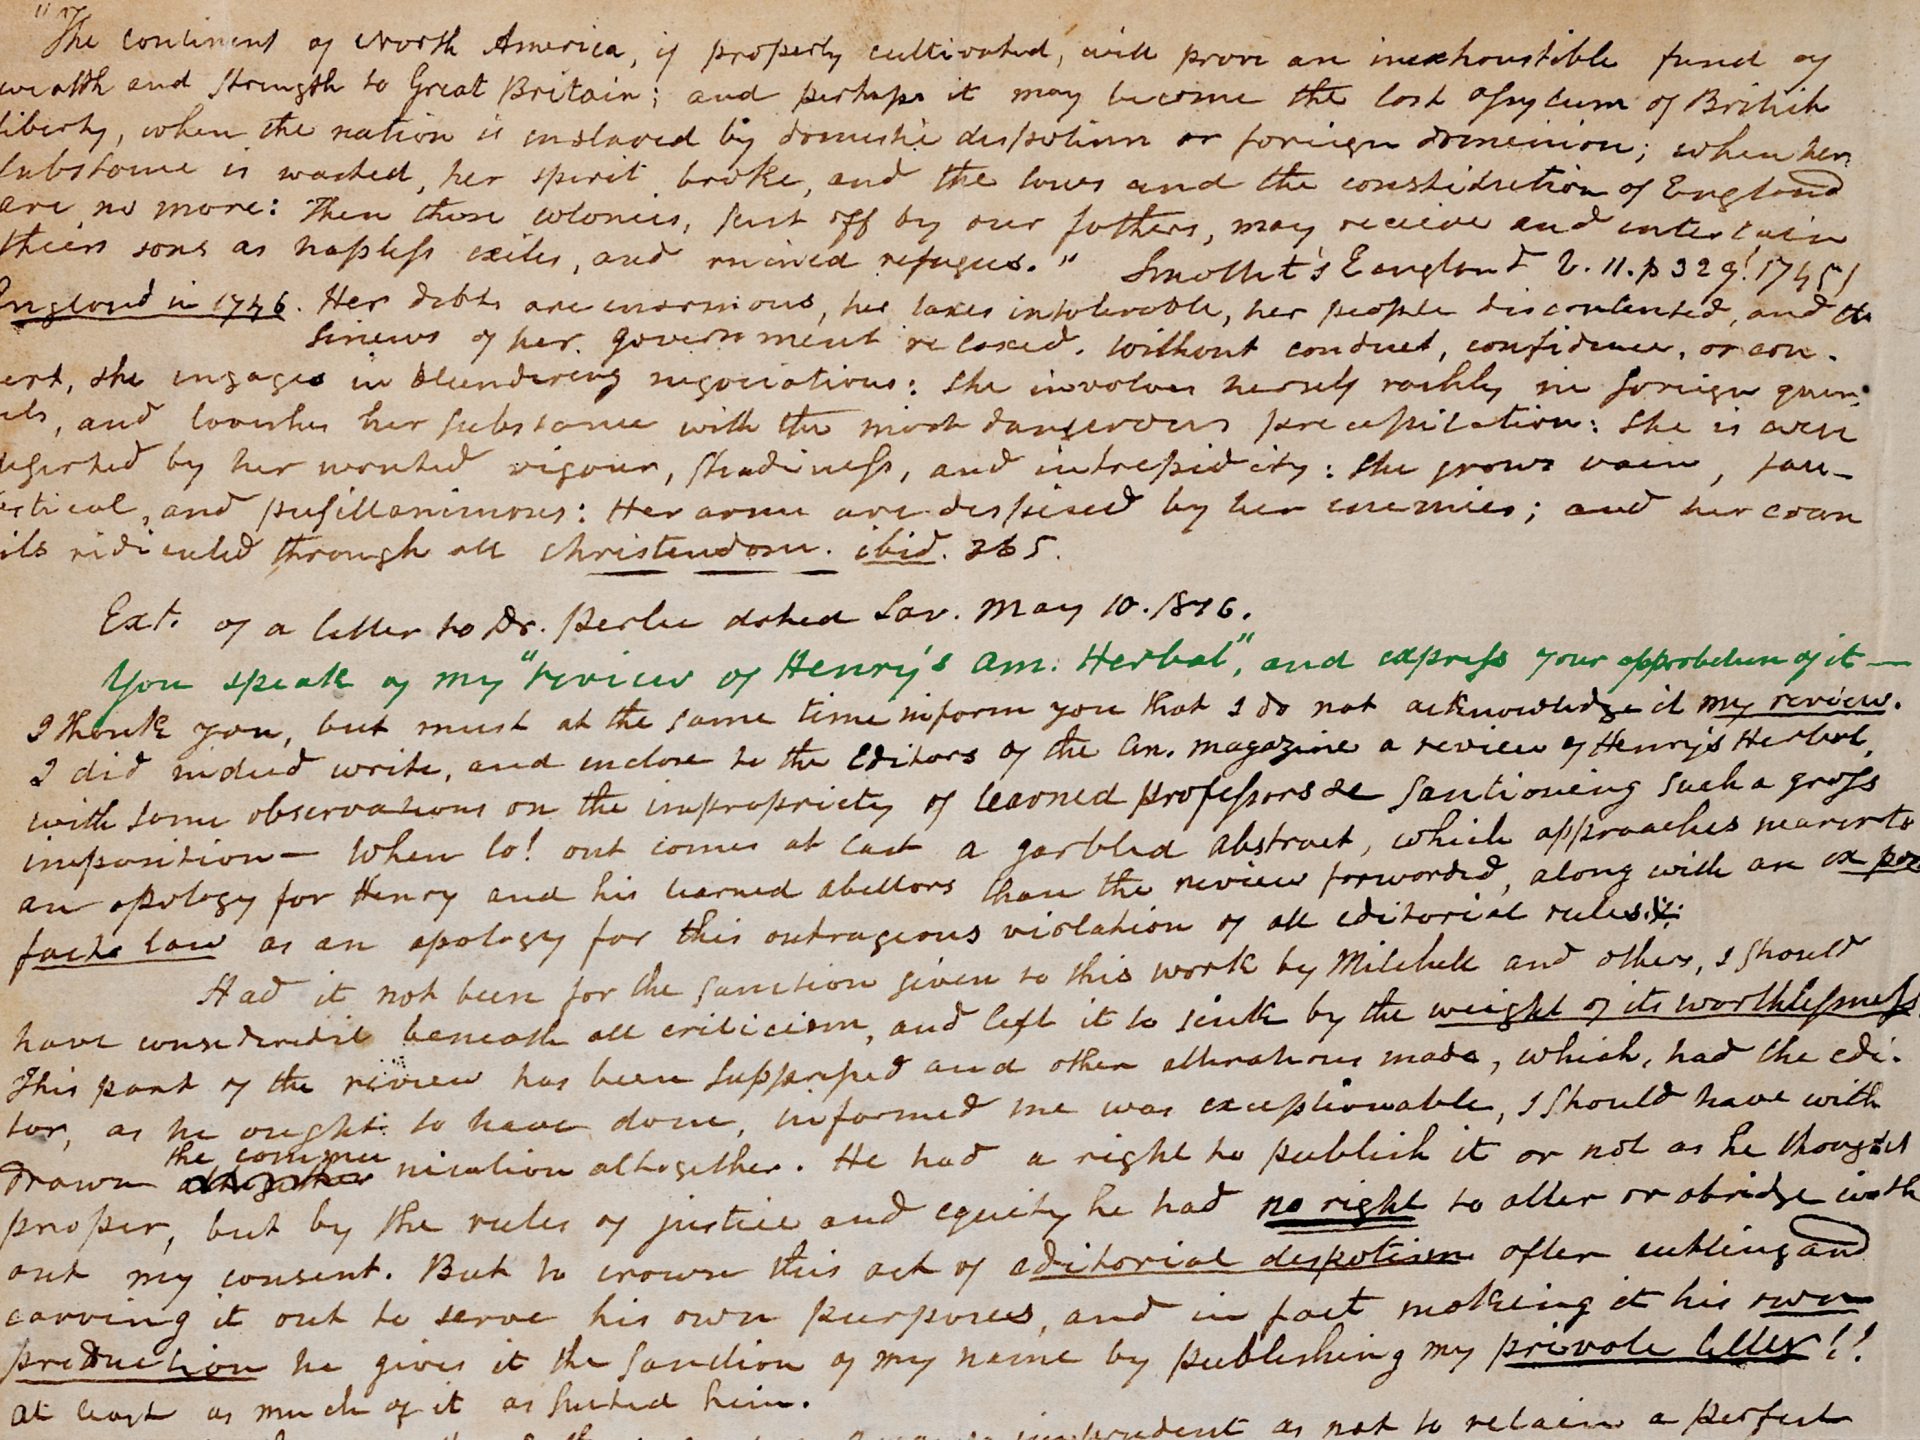 "The continent of North America, if properly cultivated, will prove an inexhaustible fund of
wealth and strength to Great Britain; and perhaps it may become the last asylum of British
liberty, when the nation is enslaved by domestic despotism or foreign dominion; when her
substance is wasted, her spirit broke, and the laws and the constitution of England
are no more: Then those colonies, sent off by our fathers, may receive and entertain
their sons as hapless exiles, and ruined refugees." Smollet's England V. 11. p 329! 1745!
England in 1746. Her debts are enormous, her taxes intolerable, her people discontented, and the
sinews of her government relaxed. Without conduct, confidence, or con-
cert, she engages in blundering negociations: She involves herself rashly in foreign quar-
rels, and lavishes her substance with the most dangerous precipitation: She is even
deserted by her wonted vigour, steadiness, and intrepidity: She grows vain, fan-
tastical, and pusillanimous: Her arms are despised by her enemies; and her coun
cils ridiculed through all Christendom. ibid. 265.
Ext. of a letter to Dr. Perlee dated Sav. May 10. 1816.
You speak of my "review of Henry's Am: Herbal", and express your approbation of it—
I thank you, but must at the same time inform you that I do not acknowledge it my review.
I did indeed write, and enclose to the Editors of the Am. magazine a review of Henry's Herbal,
with some observations on the impropriety of learned professors &c santioning such a gross
imposition— When lo! out comes at last a garbled abstract, which approaches nearer to
an apology for Henry and his learned abettors than the review forwarded, along with an ex post
facto law as an apology for this outrageous violation of all editorial rules.
Had it not been for the sanction given to this work by Mitchell and others, I should
have considered it beneath all criticism, and left it to sink by the weight of its worthlessness.
This part of the review has been suppressed and other alterations made, which, had the edi-
tor, as he ought to have done, informed me was exceptionable, I should have with
drawn the commu nication altogether. He had a right to publish it or not as he thought
proper, but by the rules of justice and equity he had no right to alter or abridge with
out my consent. But to crown this act of editorial despotism after cutting and
carving it out to serve his own purposes, and in fact making it his own
production he gives it the sanction of my name by publishing my private letter!!
at least as much of it as suited him.
imprudent as not to retain a perfect